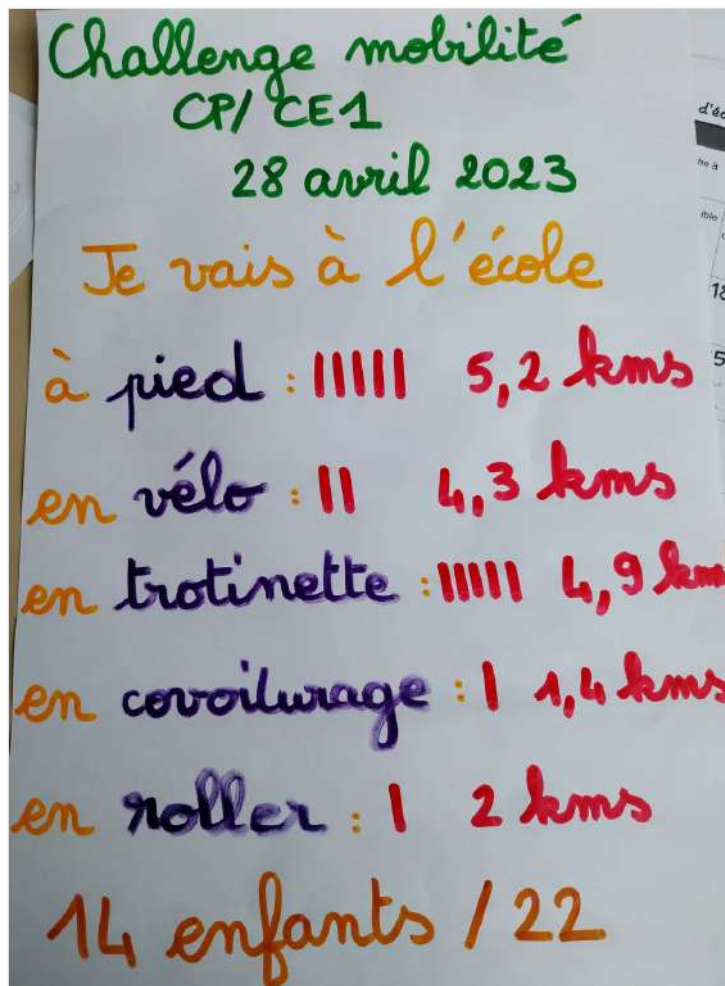 Challenge mobilité
CP/ CE1
28 avril 2023
Je vais à l'école
à pied : ||||| 5,2 kms
en vélo : || 4,3 kms
en trotinette : ||||| 4,9 km
en covoiturage : | 1,4 kms
en roller : | 2 kms
14 enfants / 22
d'éc
he à
ible
18
5